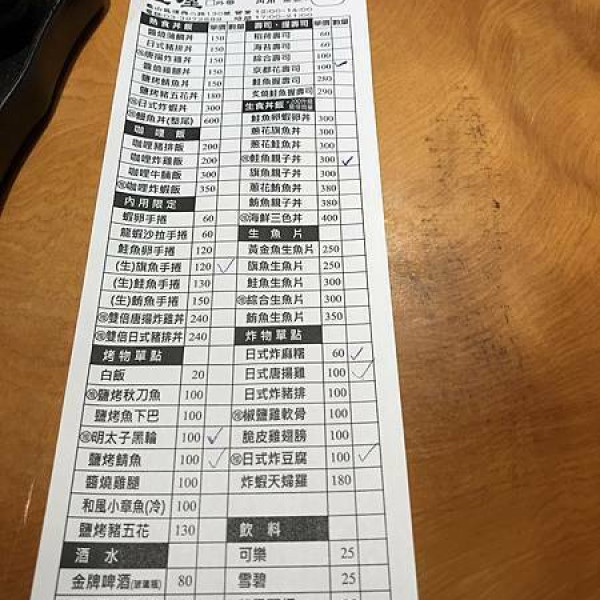 熟食丼飯 單價 數量
醬燒鯛魚丼 150
日式豬排丼 150
唐揚炸雞丼 150
醬燒雞腿丼 150
鹽烤鯖魚丼 150
鹽烤豬五花丼 180
日式炸蝦丼 300
鰻魚丼(整尾) 600
咖哩飯
咖哩豬排飯 200
咖哩炸雞飯 200
咖哩牛腩飯 300
咖哩炸蝦飯 350
內用限定
蝦卵手捲 60
龍蝦沙拉手捲 60
鮭魚卵手捲 120
(生)旗魚手捲 120
(生)鮭魚手捲 130
(生)鮪魚手捲 150
雙倍唐揚炸雞丼 240
雙倍日式豬排丼 240
烤物單點
白飯 20
鹽烤秋刀魚 100
鹽烤魚下巴 100
明太子黑輪 100
鹽烤鯖魚 100
醬燒雞腿 100
和風小章魚(冷) 100
鹽烤豬五花 130
酒水
金牌啤酒(玻璃瓶) 80
壽司・握壽司 單價 數量
稻荷壽司 60
海苔壽司 60
綜合壽司 100
京都花壽司 100
鮭魚握壽司 280
炙燒鮭魚握壽司 290
生食丼飯
鮭魚卵蝦卵丼 300
蔥花旗魚丼 300
蔥花鮭魚丼 300
鮭魚親子丼 300
旗魚親子丼 300
蔥花鮪魚丼 380
鮪魚親子丼 380
海鮮三色丼 400
生魚片
黃金魚生魚片 250
旗魚生魚片 250
鮭魚生魚片 300
綜合生魚片 300
鮪魚生魚片 350
炸物單點
日式炸麻糬 60
日式唐揚雞 100
日式炸豬排 100
椒鹽雞軟骨 100
脆皮雞翅膀 100
日式炸豆腐 100
炸蝦天婦羅 180
飲料
可樂 25
雪碧 25